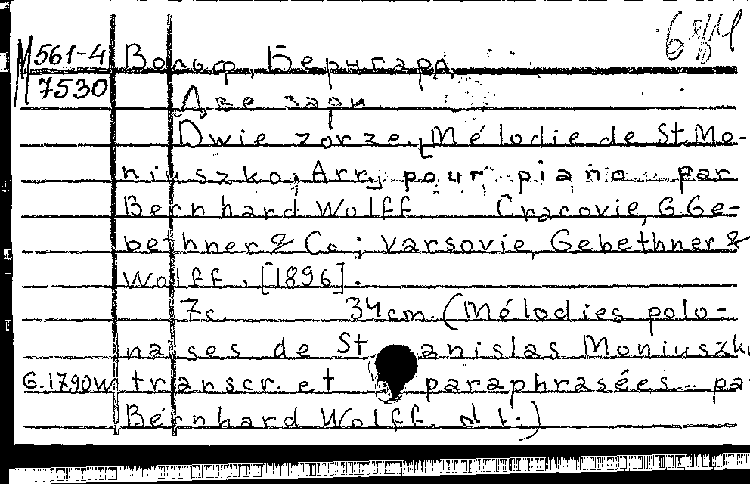 М 561-4 Вольф, Бернгард.
7530
Две зари
Dwie zorze. [Mélodie de St. Mo-
niuszko; Arr. pour piano par
Bernhard Wolff. Cracovie, G. Ge-
bethner & Co; Varsovie, Gebethner &
Wolff. [1896].
7 с. 34 cm. (Mélodies polo-
naises de Stanislas Moniuszko
G.1790W transcr. et paraphrasées pa
Bernhard Wolff. N 1.)